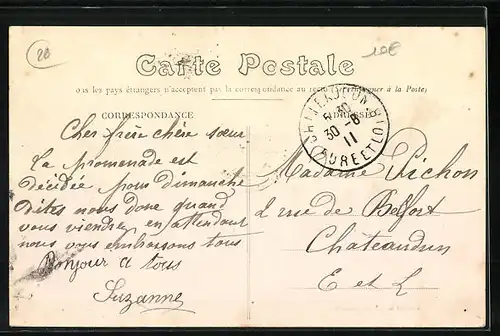 28
10€
Carte Postale
ous les pays étrangers n'acceptent pas la correspondance au recto
à la Poste)
CORRESPONDANCE
CHATEAUDUN
30
30 -6
11
EURE ET LOIR
Cher frère chère sœur
La promenade est
décidée pour dimanche
dites nous donc quand
vous viendrez en attendant
nous vous embrassons tous
Bonjour a tous
Suzanne
Madame Pichon
2 rue de Belfort
Chateaudun
E et L